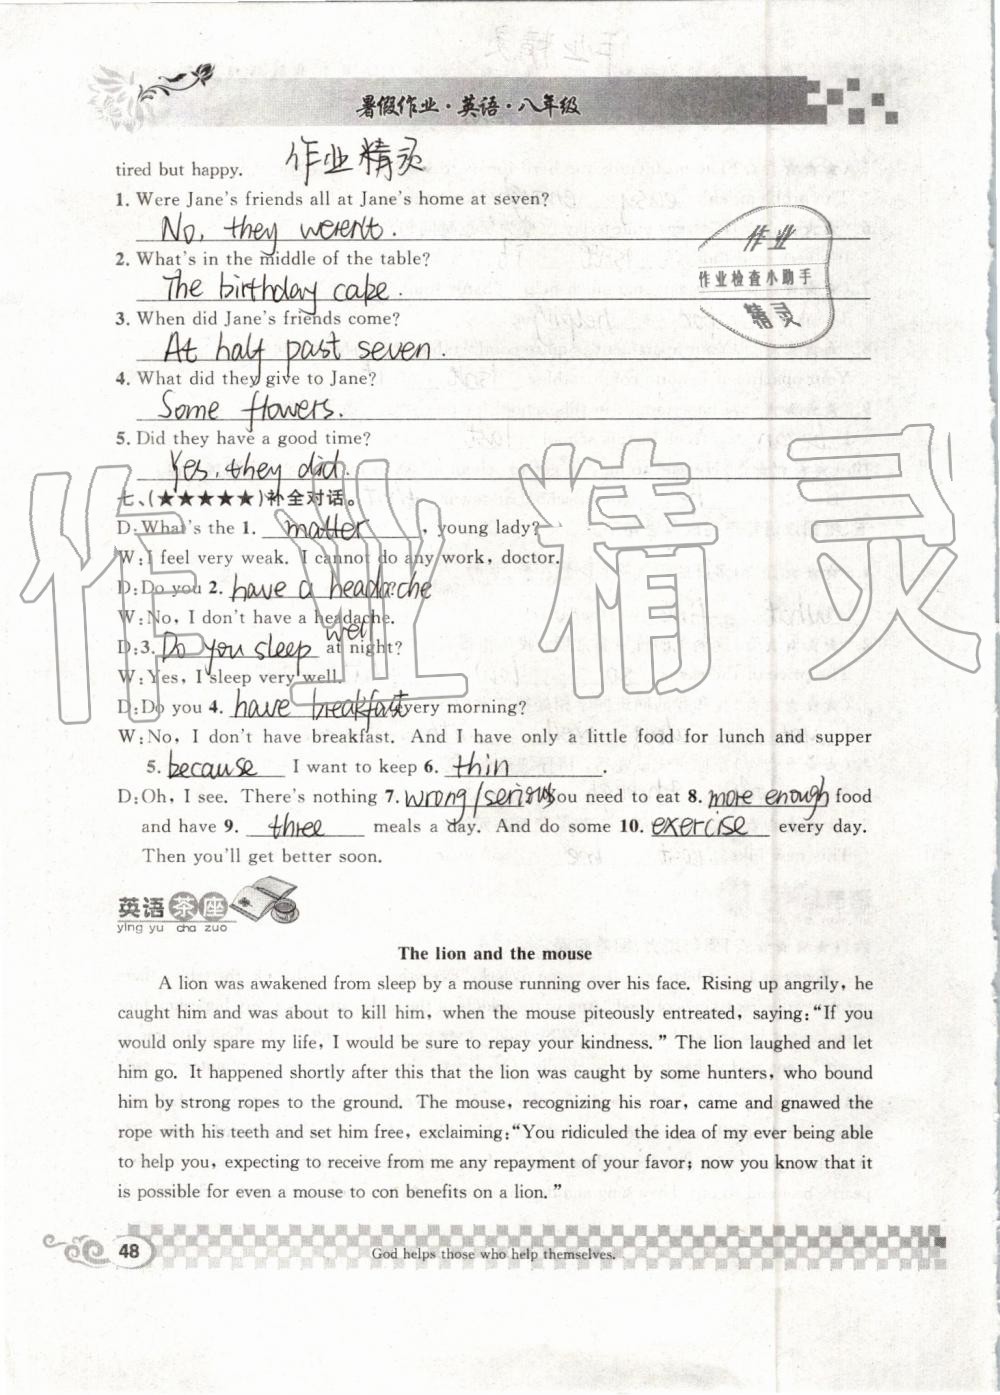 作业精灵
暑假作业·英语·八年级
tired but happy.
作业精灵
1. Were Jane's friends all at Jane's home at seven?
No, they weren't.
作业
作业检查小助手
精灵
2. What's in the middle of the table?
The birthday cake.
3. When did Jane's friends come?
At half past seven.
4. What did they give to Jane?
Some flowers.
5. Did they have a good time?
Yes, they did.
七、(★★★★★)补全对话。
D: What's the 1. matter, young lady?
W: I feel very weak. I cannot do any work, doctor.
D: Do you 2. have a headache
W: No, I don't have a headache.
D: 3. Do you sleep well at night?
W: Yes, I sleep very well.
D: Do you 4. have breakfast every morning?
W: No, I don't have breakfast. And I have only a little food for lunch and supper
5. because I want to keep 6. thin.
D: Oh, I see. There's nothing 7. wrong/serious You need to eat 8. more enough food
and have 9. three meals a day. And do some 10. exercise every day.
Then you'll get better soon.
作业精灵
英语茶座
ying yu cha zuo
The lion and the mouse
A lion was awakened from sleep by a mouse running over his face. Rising up angrily, he
caught him and was about to kill him, when the mouse piteously entreated, saying: "If you
would only spare my life, I would be sure to repay your kindness." The lion laughed and let
him go. It happened shortly after this that the lion was caught by some hunters, who bound
him by strong ropes to the ground. The mouse, recognizing his roar, came and gnawed the
rope with his teeth and set him free, exclaiming: "You ridiculed the idea of my ever being able
to help you, expecting to receive from me any repayment of your favor; now you know that it
is possible for even a mouse to con benefits on a lion."
48
God helps those who help themselves.